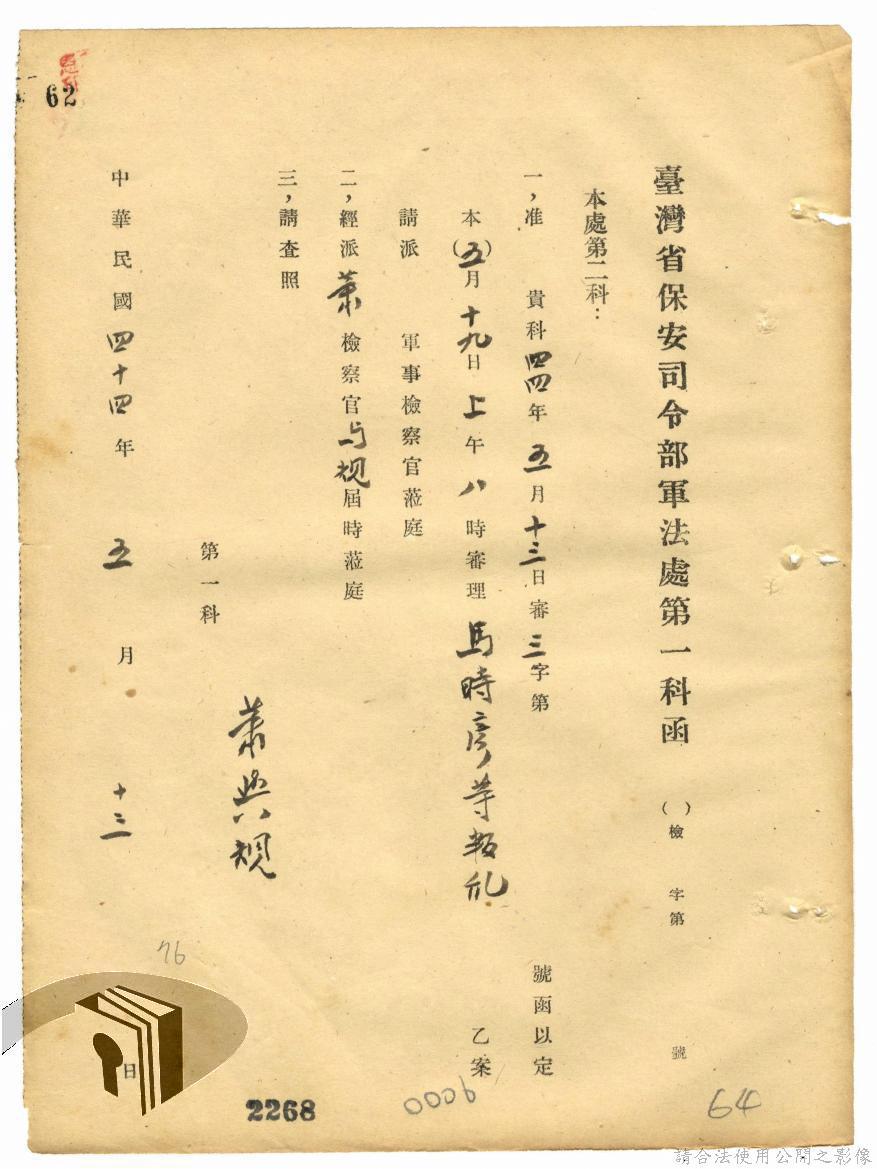 臺灣省保安司令部軍法處第一科函 ( ) 檢 字第 號
本處第二科：
一，准 貴科四四年五月十三日審三字第 號函以定
本(五)月十九日上午八時審理馬時彥等叛乱 乙案
請派 軍事檢察官蒞庭
二，經派蕭檢察官与规屆時蒞庭
三，請查照
第一科 蕭與規
中華民國四十四年 五 月 十三 日
62
76
2268
0006
64
請合法使用公開之影像